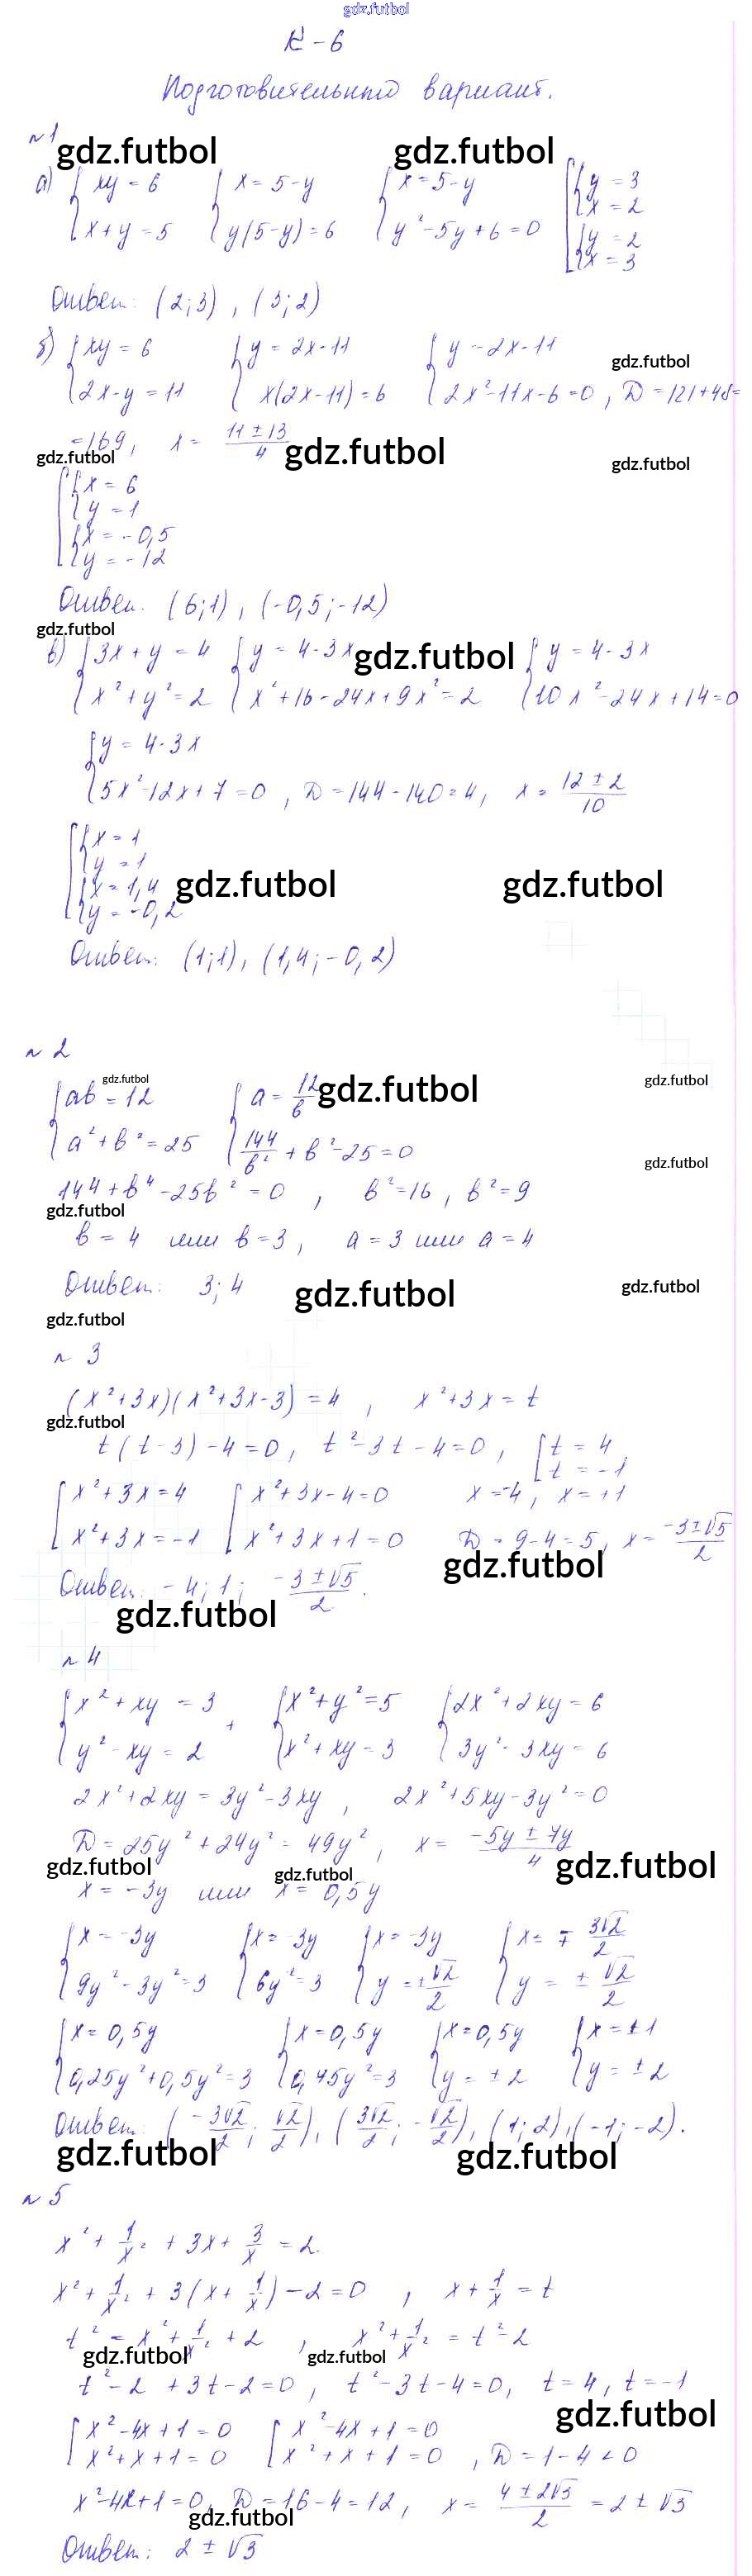 gdz.futbol
К-6
Подготовительный вариант.
№1
gdz.futbol gdz.futbol
а) { xy = 6 { x = 5-y { x = 5-y [ { y = 3
x+y = 5 y(5-y) = 6 y²-5y+6 = 0 x = 2
{ y = 2
x = 3
Ответ: (2;3), (3;2)
б) { xy = 6 { y = 2x-11 { y = 2x-11
gdz.futbol
2x-y = 11 x(2x-11) = 6 2x²-11x-6=0, D = 121+48=
=169, x = (11±13)/4
gdz.futbol gdz.futbol gdz.futbol
[ { x = 6
y = 1
{ x = -0,5
y = -12
Ответ. (6;1), (-0,5;-12)
gdz.futbol
в) { 3x+y = 4 { y = 4-3x gdz.futbol { y = 4-3x
x²+y²=2 x²+16-24x+9x²=2 10x²-24x+14=0
{ y = 4-3x
5x²-12x+7=0, D=144-140=4, x = (12±2)/10
[ { x = 1
y = 1
{ x = 1,4
y = -0,2
gdz.futbol gdz.futbol
Ответ: (1;1), (1,4;-0,2)
№2
{ ab = 12 { a = 12/в
gdz.futbol gdz.futbol gdz.futbol
a²+b²=25 144/в² + в²-25=0
gdz.futbol
144+b⁴-25b²=0, в²=16, в²=9
gdz.futbol
в = 4 или в=3, a=3 или a=4
Ответ: 3; 4
gdz.futbol gdz.futbol
gdz.futbol
№3
(x²+3x)(x²+3x-3)=4, x²+3x=t
gdz.futbol
t(t-3)-4=0, t²-3t-4=0, [ t = 4
t = -1
[ x²+3x=4 [ x²+3x-4=0 x=-4, x=+1
x²+3x=-1 x²+3x+1=0 D=9-4=5, x = (-3±√5)/2
gdz.futbol
Ответ: -4; 1; (-3±√5)/2.
gdz.futbol
№4
{ x²+xy = 3 + { x²+y²=5 { 2x²+2xy=6
y²-xy = 2 x²+xy=3 3y²-3xy=6
2x²+2xy=3y²-3xy, 2x²+5xy-3y²=0
D=25y²+24y²=49y², x = (-5y±7y)/4
gdz.futbol gdz.futbol gdz.futbol
x = -3y или x = 0,5y
{ x = -3y { x = -3y { x = -3y { x = ∓ 3√2/2
9y²-3y²=3 6y²=3 y = ± √2/2 y = ± √2/2
{ x = 0,5y { x = 0,5y { x = 0,5y { x = ±1
0,25y²+0,5y²=3 0,75y²=3 y = ±2 y = ±2
Ответ: (-3√2/2; √2/2), (3√2/2; -√2/2), (1;2), (-1;-2).
gdz.futbol gdz.futbol
№5
x²+1/x²+3x+3/x=2
x²+1/x²+3(x+1/x)-2=0, x+1/x=t
t²=x²+1/x²+2, x²+1/x²=t²-2
gdz.futbol gdz.futbol
t²-2+3t-2=0, t²-3t-4=0, t=4, t=-1
gdz.futbol
[ x²-4x+1=0 [ x²-4x+1=0
x²+x+1=0 x²+x+1=0, D=1-4<0
x²-4x+1=0, D=16-4=12, x = (4±2√3)/2 = 2±√3
gdz.futbol
Ответ: 2±√3